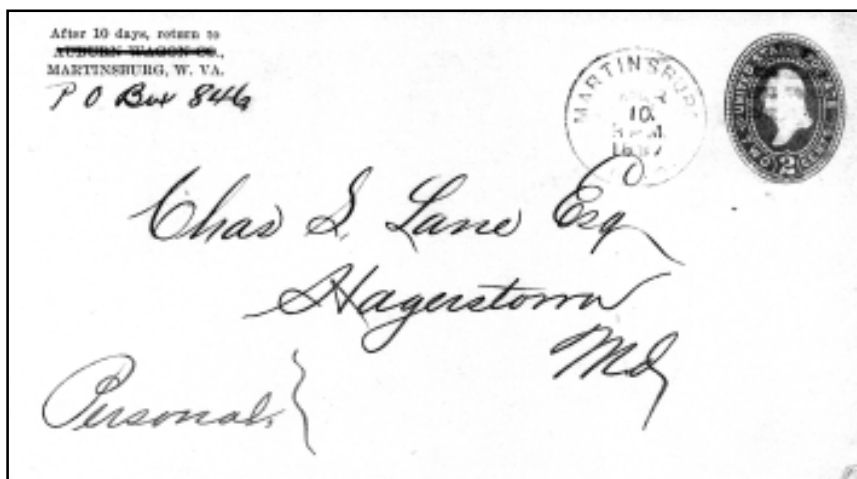 After 10 days, return to
AUBURN WAGON CO.,
MARTINSBURG, W. VA.
P O Box 846
MARTINSBURG
10
UNITED STATES POSTAGE
TWO 2 CENTS
Chas S. Lane Esq
Hagerstown
Md
Personal